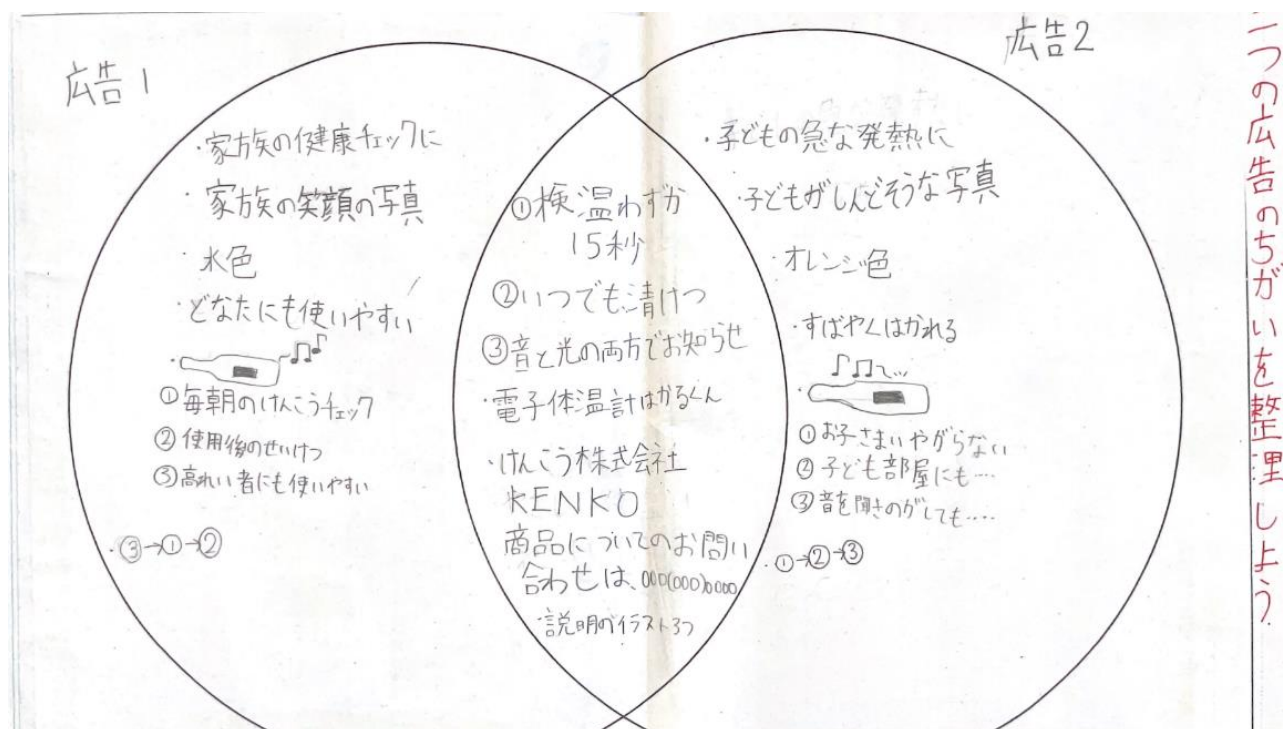 二つの広告のちがいを整理しよう。
広告1
・家族の健康チェックに
・家族の笑顔の写真
・水色
・どなたにも使いやすい
①毎朝のけんこうチェック
②使用後のせいけつ
③高れい者にも使いやすい
・③→①→②
①検温わずか
15秒
②いつでも清けつ
③音と光の両方でお知らせ
・電子体温計はかるくん
・けんこう株式会社
KENKO
商品についてのお問い
合わせは、000(000)0000
・説明のイラスト3つ
広告2
・子どもの急な発熱に
・子どもがしんどそうな写真
・オレンジ色
・すばやくはかれる
①お子さまいやがらない
②子ども部屋にも…
③音を聞きのがしても……
・①→②→③